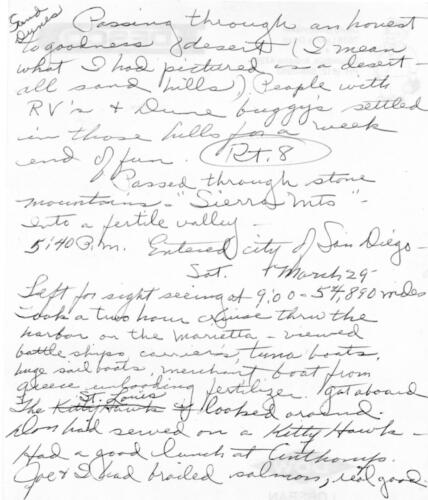 Sand Dunes
Passing through an honest
to goodness desert (I mean
what I had pictured is a desert -
all sand hills). People with
RV's & Dune buggy's settled
in those hills for a week
end of fun. Rt. 8
Passed through stone
mountains - "Sierra Mts" -
Into a fertile valley -
5:40 P.m. Entered city of San Diego -
Sat. March 29 -
Left for sight seeing at 9:00 - 54,890 miles
Took a two hour cruise thru the
harbor on the Marietta - viewed
battle ships, carriers, tuna boats,
huge sail boats, merchant boat from
greece unloading fertilizer. I got aboard
The Kitty Hawk St. Louis & looked around.
Don had served on a Kitty Hawk -
Had a good lunch at Anthonys.
Joe & I had broiled salmon, real good.